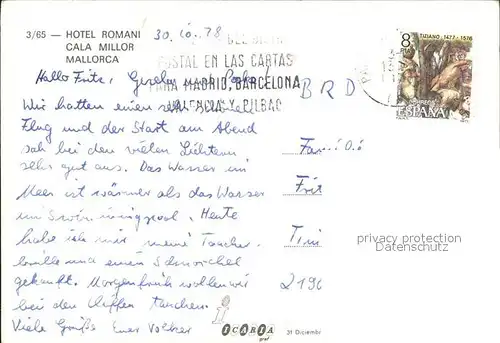 3/65 — HOTEL ROMANI
CALA MILLOR
MALLORCA
30.10.78
POSTAL EN LAS CARTAS
PARA MADRID, BARCELONA
VALENCIA Y BILBAO
TIZIANO 1477-1576
8
CORREOS
ESPAÑA
Hallo Fritz,
Wir hatten einen sehr
Flug und der Start am Abend
sah bei den vielen Lichtern
sehr gut aus. Das Wasser im
Meer ist wärmer als das Wasser
im Swimmingpool. Heute
habe ich mir meine Taucher-
brille und einen Schnorchel
gekauft. Morgen früh wollen wir
bei den Klippen tauchen.
Viele Grüße Euer Volker
BRD
Fam
Frit
219
privacy protection
Datenschutz
ICARIA
graf
31 Diciembr